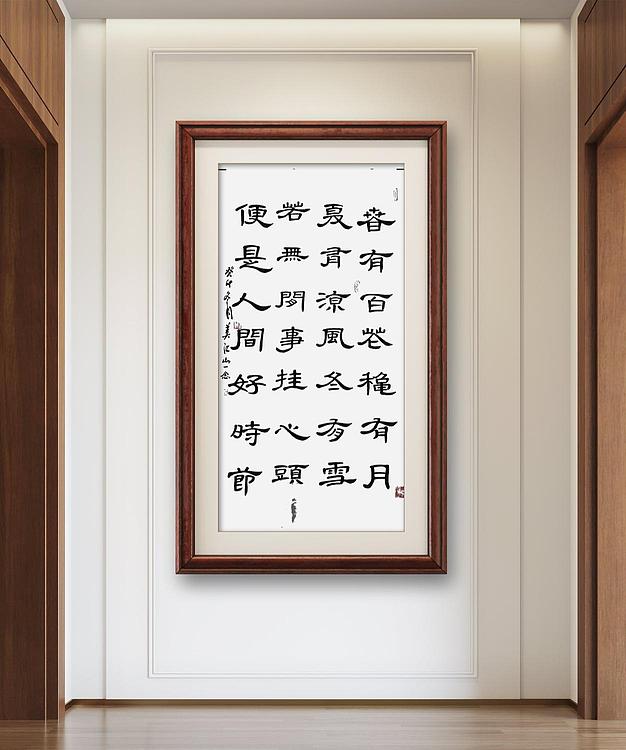 春有百花穐有月
夏有涼風冬有雪
若無閑事挂心頭
便是人間好時節
癸卯冬月